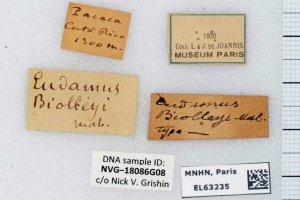 Pacaca
Costa Rica
1300 m.
1920
COLL. L & J. DE JOANNIS
MUSEUM PARIS
Eudamus
Biolleyi
Eudamus
Biolleyi Mab.
type
DNA sample ID:
NVG-18086G08
c/o Nick V. Grishin
MNHN, Paris
EL63235